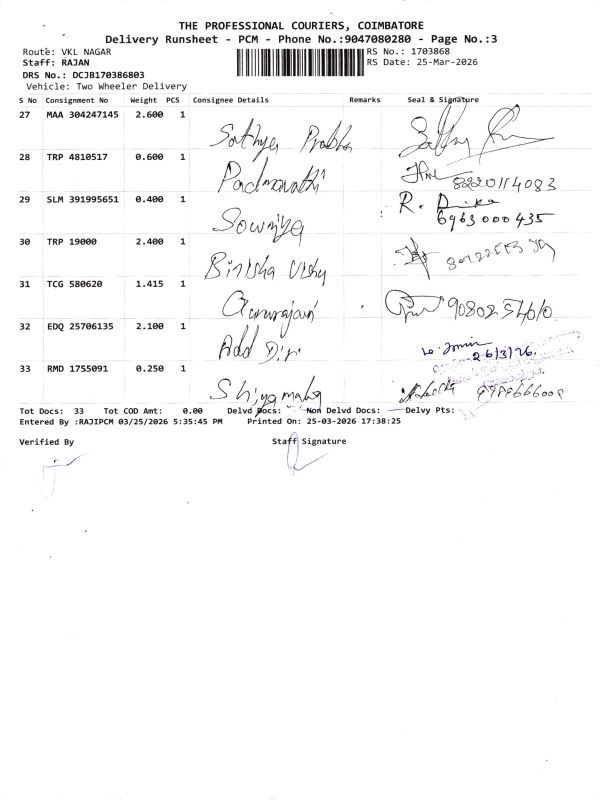 THE PROFESSIONAL COURIERS, COIMBATORE
Delivery Runsheet - PCM - Phone No.:9047080280 - Page No.:3
Route: VKL NAGAR
RS No.: 1703868
Staff: RAJAN
RS Date: 25-Mar-2026
DRS No.: DCJB170386803
Vehicle: Two Wheeler Delivery
S No Consignment No Weight PCS Consignee Details Remarks Seal & Signature
27 MAA 304247145 2.600 1 Sathya Prabha
28 TRP 4810517 0.600 1 Padmavathi 8220114083
29 SLM 391995651 0.400 1 Sowmiya R. 6963000435
30 TRP 19000 2.400 1 Binisha
31 TCG 580620 1.415 1 9080254610
32 EDQ 25706135 2.100 1 Add Dir 26/3/26.
33 RMD 1755091 0.250 1 Shiyamala
Tot Docs: 33 Tot COD Amt: 0.00 Delvd Docs: Non Delvd Docs: Delvy Pts:
Entered By :RAJIPCM 03/25/2026 5:35:45 PM Printed On: 25-03-2026 17:38:25
Verified By Staff Signature